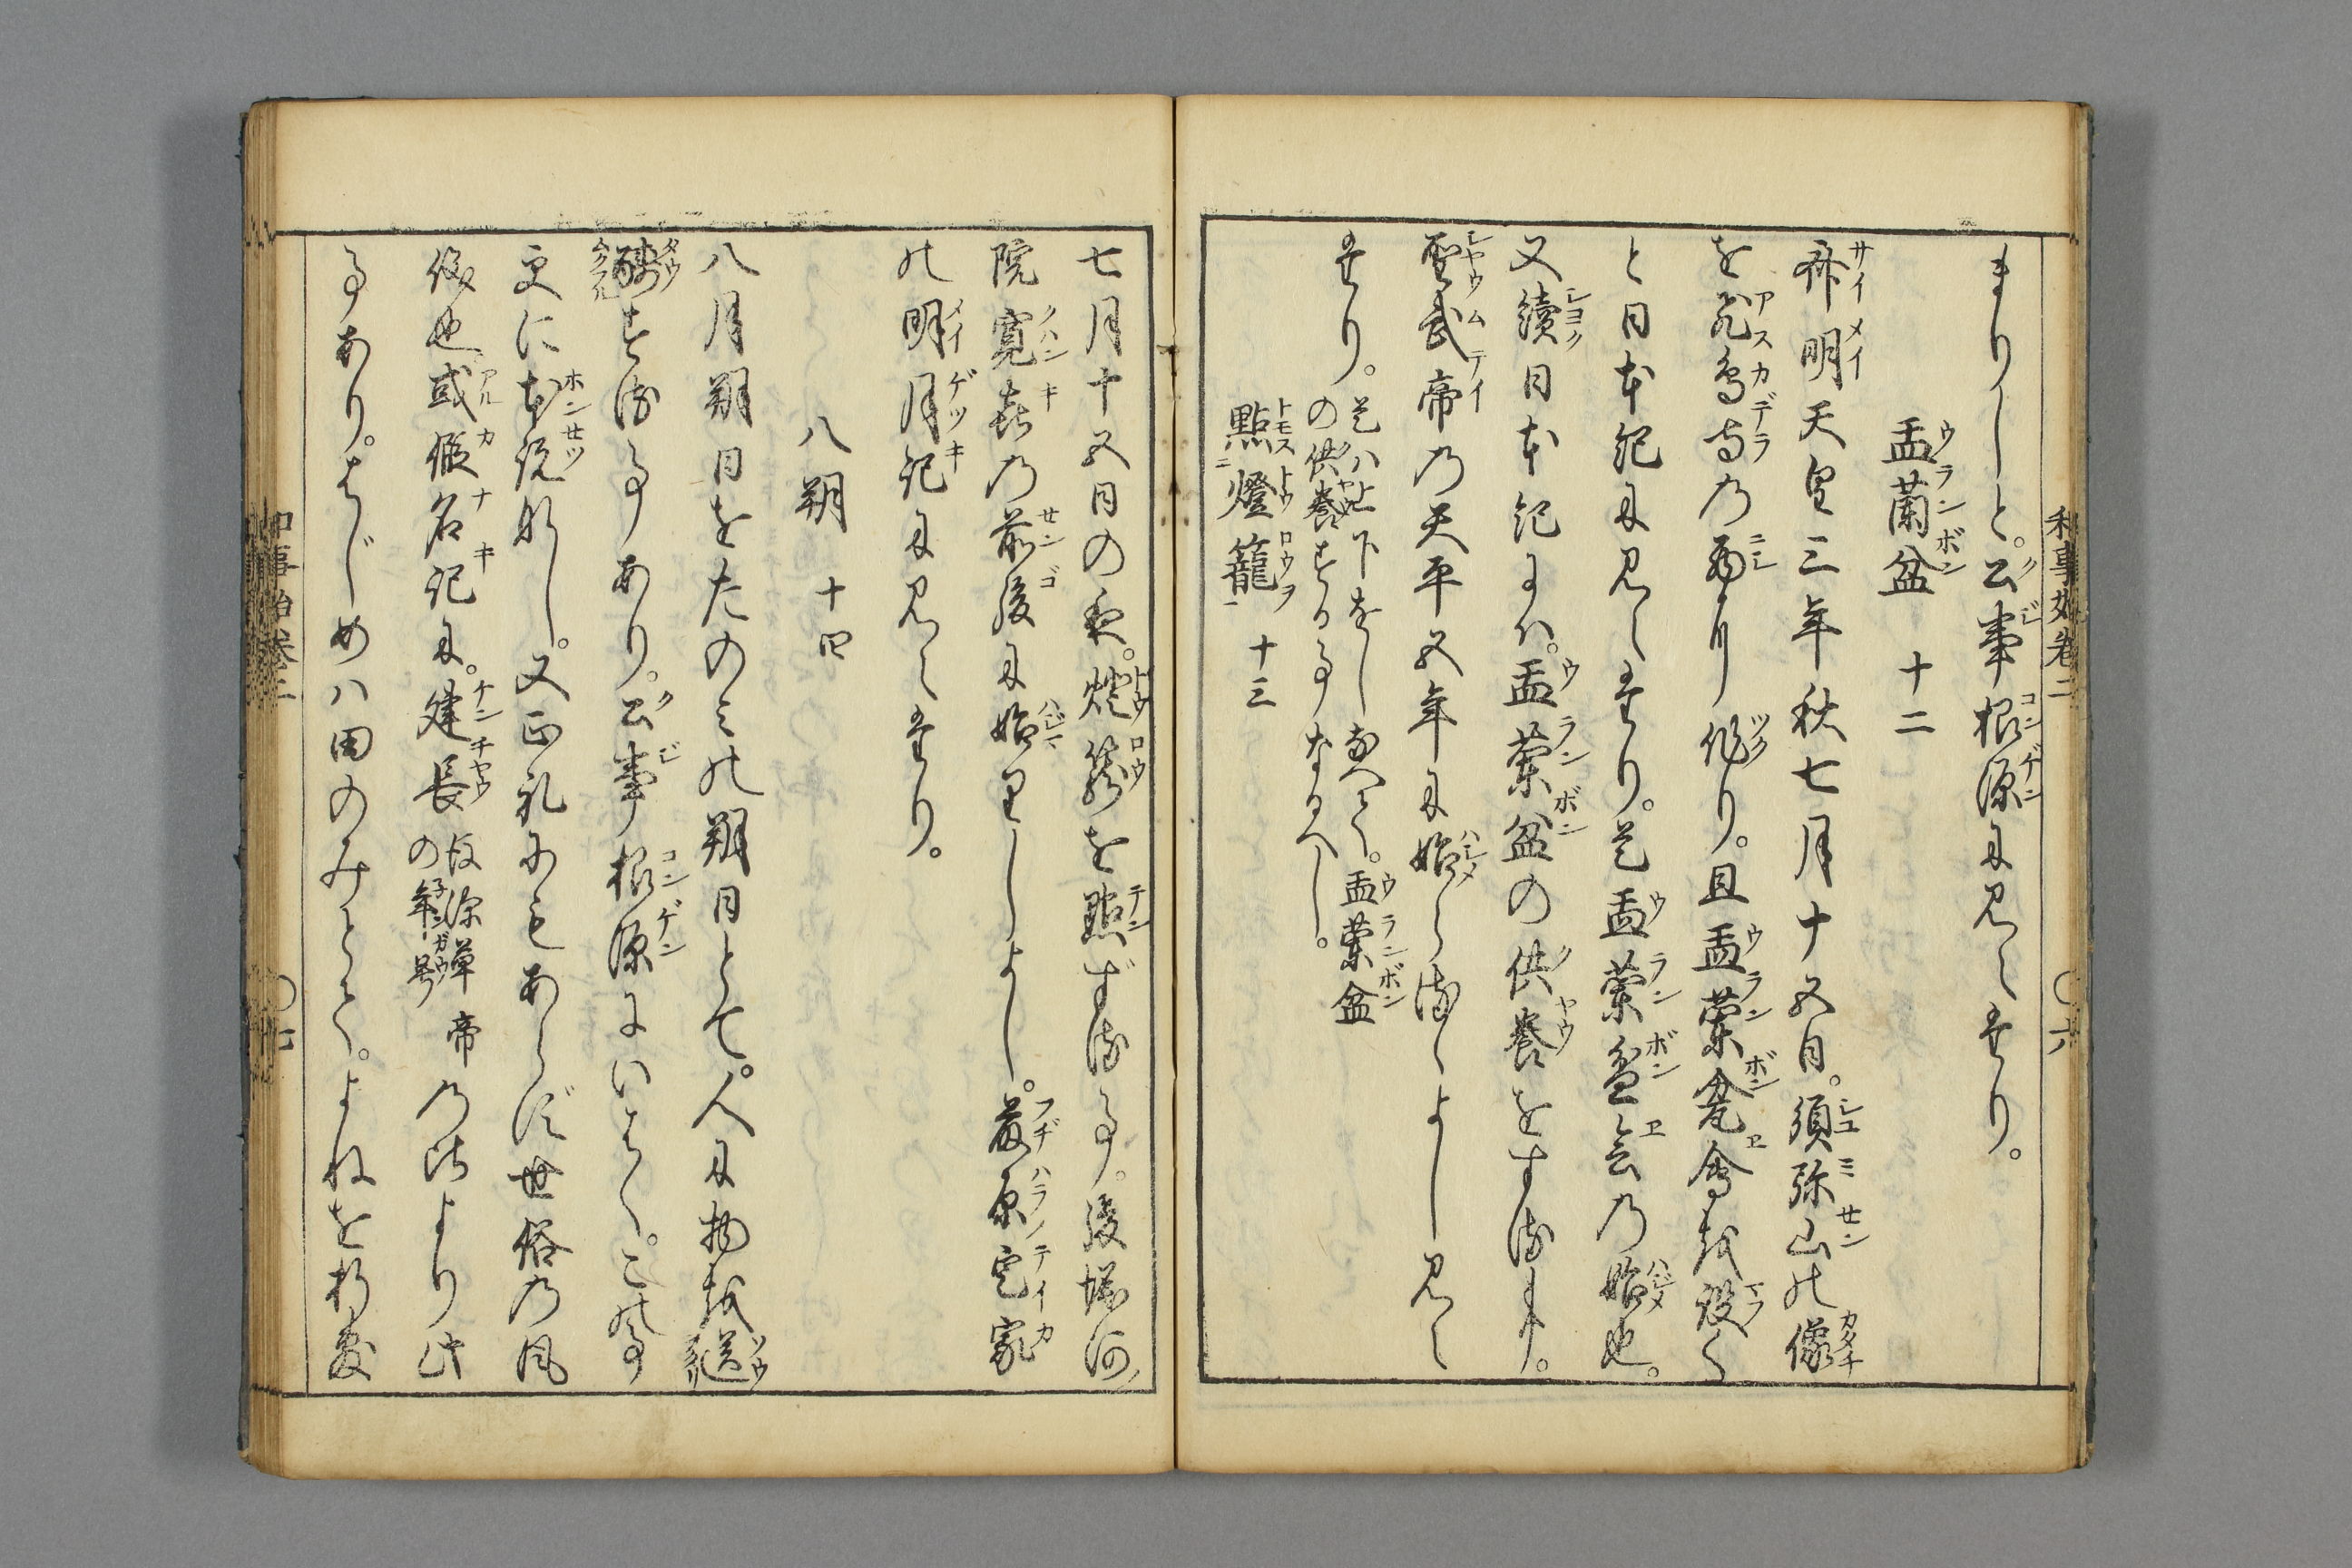 和事始卷二　〇六
まりしと。公事根源に見えたり。
盂蘭盆　十二
齊明天皇三年秋七月十五日。須弥山の像
を飛鳥寺の西より作り。且盂蘭瓫會を設く
と日本紀に見えたり。是盂蘭盆会の始也。
又續日本紀には。盂蘭盆の供養をする事。
聖武帝の天平五年に始らるゝよし見え
たり。是ハ上下をしなべて。盂蘭盆
の供養をする事なるべし。
點燈籠　十三
七月十五日の夜。燈籠を點ずる事。後堀河
院寛喜の前後に始りしよし。藤原定家
の明月記に見えたり。
八朔　十四
八月朔日をたのみの朔日とて。人に物を送
酬する事あり。公事根源にいはく。この事
更に本説なし。又正礼にもあらず世俗の風
儀也或假名記に。建長後深草帝の年号の比より此
事あり。はじめハ田のみとて。よねを折敷
和事始卷二　〇七